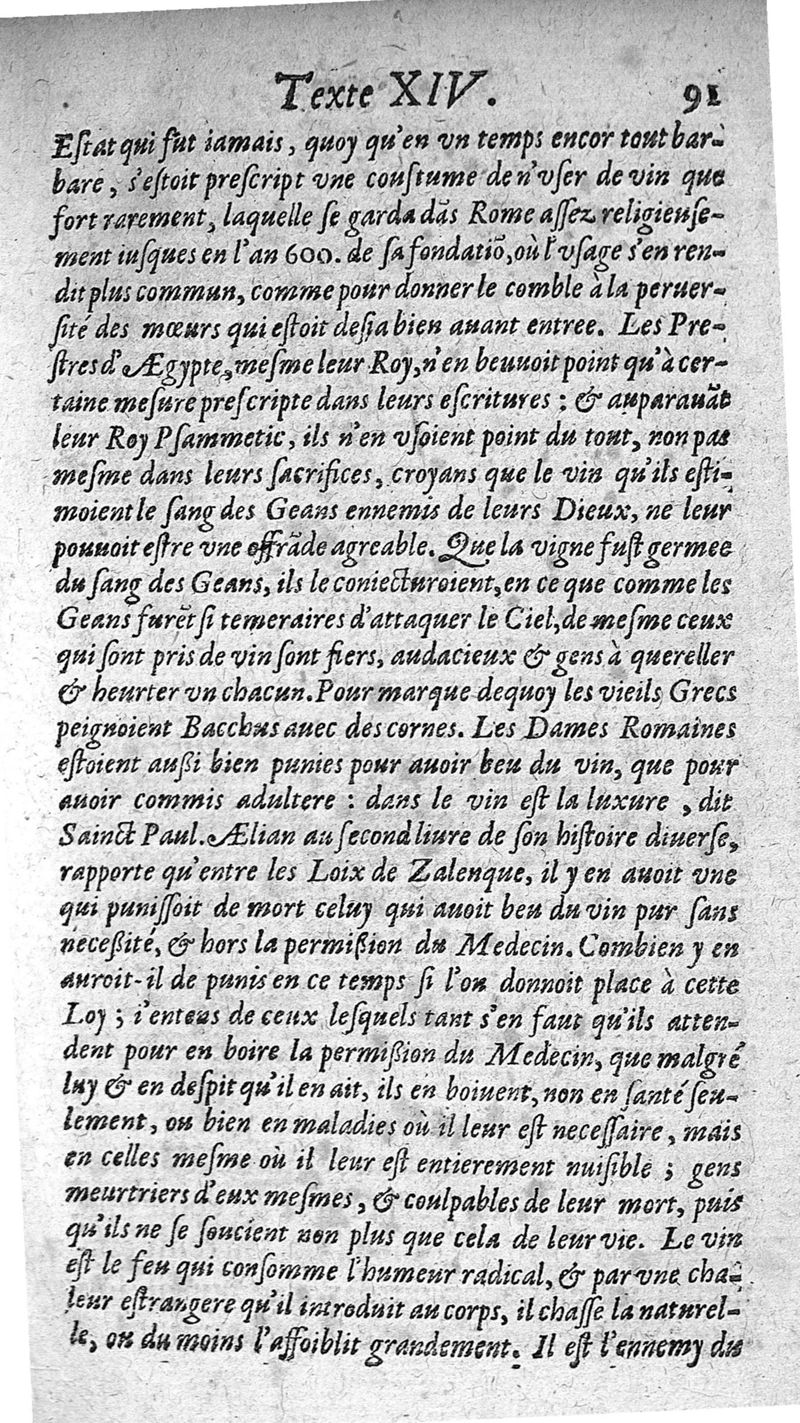 Texte XIV. 91
Eſtat qui fut iamais, quoy qu'en vn temps encor tout bar-
bare, s'eſtoit preſcript vne couſtume de n'vſer de vin que
fort rarement, laquelle ſe garda dãs Rome aſſez religieuſe-
ment iuſques en l'an 600. de ſa fondatiõ, où l'vſage s'en ren-
dit plus commun, comme pour donner le comble à la peruer-
ſité des mœurs qui eſtoit deſia bien auant entree. Les Pre-
ſtres d'Ægypte, meſme leur Roy, n'en beuuoit point qu'à cer-
taine meſure preſcripte dans leurs eſcritures : & auparauãt
leur Roy Pſammetic, ils n'en vſoient point du tout, non pas
meſme dans leurs ſacrifices, croyans que le vin qu'ils eſti-
moient le ſang des Geans ennemis de leurs Dieux, ne leur
pouuoit eſtre vne offrãde agreable. Que la vigne fuſt germee
du ſang des Geans, ils le coniecturoient, en ce que comme les
Geans furẽt ſi temeraires d'attaquer le Ciel, de meſme ceux
qui ſont pris de vin ſont fiers, audacieux & gens à quereller
& heurter vn chacun. Pour marque dequoy les vieils Grecs
peignoient Bacchus auec des cornes. Les Dames Romaines
eſtoient außi bien punies pour auoir beu du vin, que pour
auoir commis adultere : dans le vin eſt la luxure, dit
Sainct Paul. Ælian au ſecond liure de ſon hiſtoire diuerſe,
rapporte qu'entre les Loix de Zalenque, il y en auoit vne
qui puniſſoit de mort celuy qui auoit beu du vin pur ſans
neceßité, & hors la permißion du Medecin. Combien y en
auroit-il de punis en ce temps ſi l'on donnoit place à cette
Loy ; i'entens de ceux leſquels tant s'en faut qu'ils atten-
dent pour en boire la permißion du Medecin, que malgré
luy & en deſpit qu'il en ait, ils en boiuent, non en ſanté ſeu-
lement, ou bien en maladies où il leur eſt neceſſaire, mais
en celles meſme où il leur eſt entierement nuiſible ; gens
meurtriers d'eux meſmes, & coulpables de leur mort, puis
qu'ils ne ſe ſoucient non plus que cela de leur vie. Le vin
eſt le feu qui conſomme l'humeur radical, & par vne cha-
leur eſtrangere qu'il introduit au corps, il chaſſe la naturel-
le, ou du moins l'affoiblit grandement. Il eſt l'ennemy du